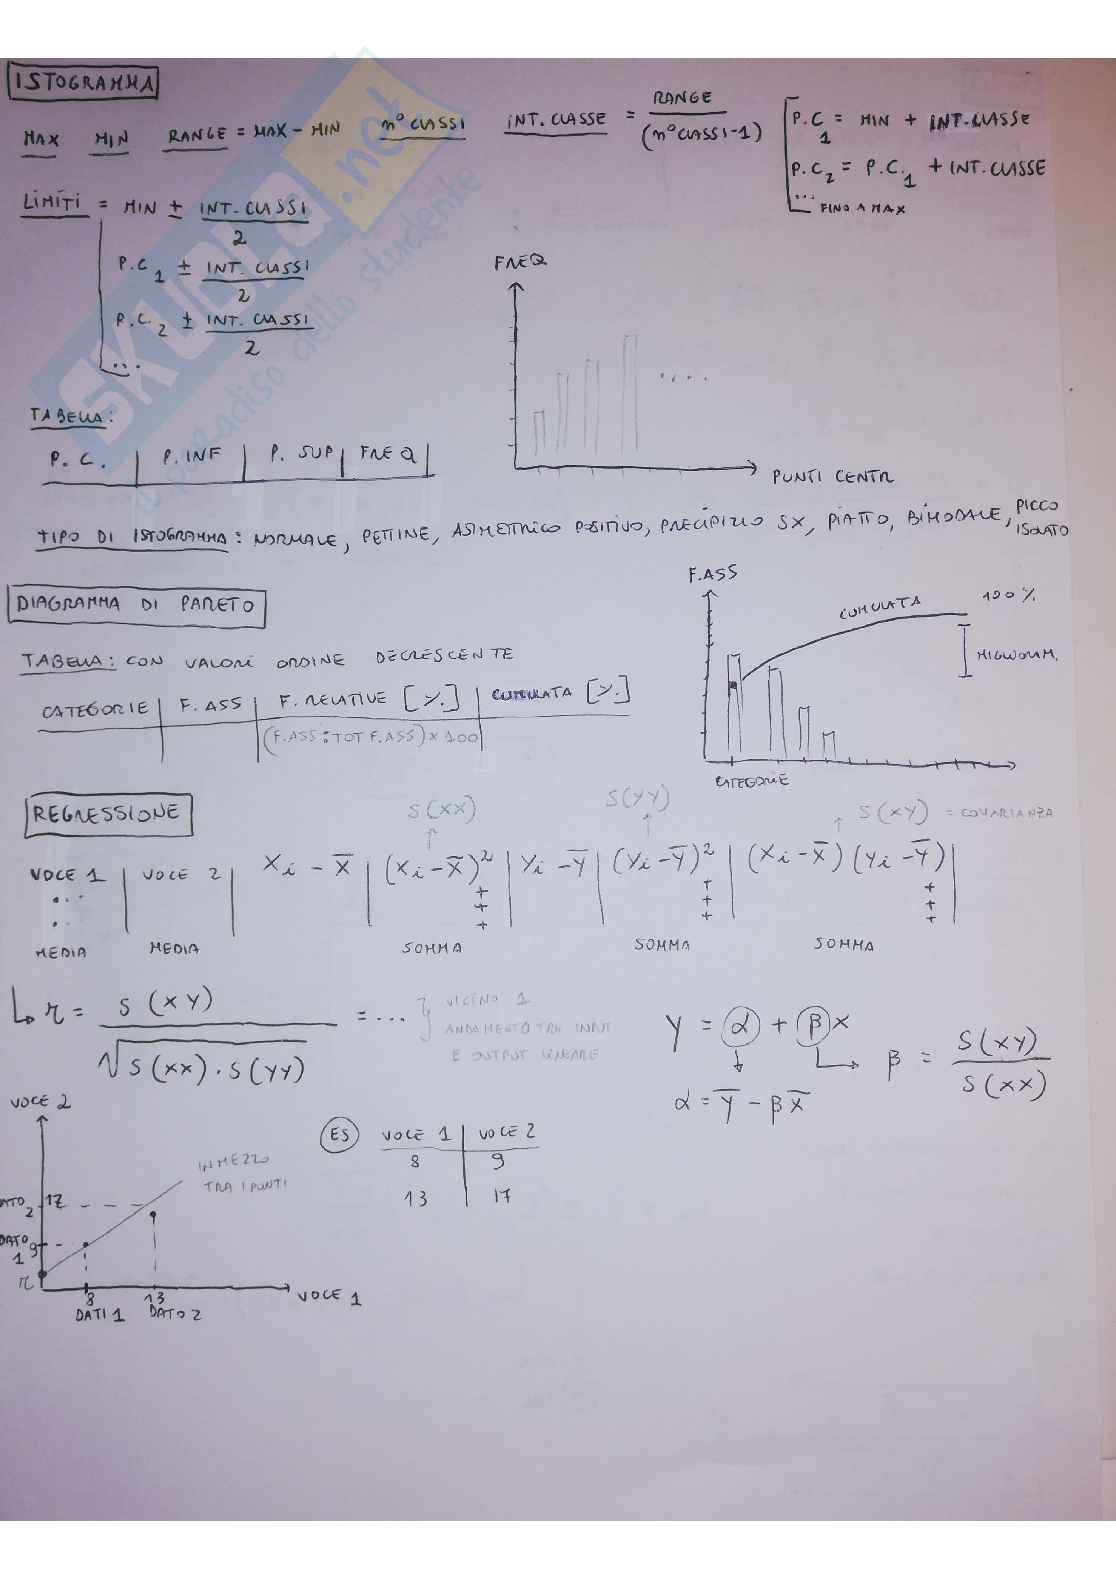 ISTOGRAMMA
MAX MIN RANGE = MAX - MIN n° CLASSI INT. CLASSE = RANGE / (n° CLASSI - 1)
P.C1 = MIN + INT. CLASSE
P.C2 = P.C.1 + INT. CLASSE
... FINO A MAX
LIMITI = MIN ± INT. CLASSI / 2
P.C1 ± INT. CLASSI / 2
P.C.2 ± INT. CLASSI / 2
...
FREQ
....
PUNTI CENTR
TABELLA:
P.C. | P. INF | P. SUP | FREQ |
TIPO DI ISTOGRAMMA: NORMALE, PETTINE, ASIMETRICO POSITIVO, PRECIPIZIO SX, PIATTO, BIMODALE, PICCO ISOLATO
DIAGRAMMA DI PARETO
TABELLA: CON VALORI ORDINE DECRESCENTE
CATEGORIE | F. ASS | F. RELATIVE [%] | CUMULATA [%]
(F.ASS : TOT F.ASS) × 100
F.ASS
CUMULATA
100%
MIGLIORAM.
CATEGORIE
REGRESSIONE
S(XX) S(YY) S(XY) = COVARIANZA
VOCE 1 | VOCE 2 | Xi - X̅ | (Xi - X̅)² | Yi - Y̅ | (Yi - Y̅)² | (Xi - X̅)(Yi - Y̅) |
+ + +
+ + +
+ + +
MEDIA MEDIA SOMMA SOMMA SOMMA
r = S(XY) / √S(XX) · S(YY) = ...
VICINO 1
ANDAMENTO TRA INPUT
E OUTPUT LINEARE
Y = α + βX
β = S(XY) / S(XX)
α = Y̅ - βX̅
VOCE 2
IN MEZZO
TRA I PUNTI
DATO 2 17
DATO 1 9
r
8 13
DATI 1 DATO 2
VOCE 1
ES
VOCE 1 | VOCE 2
8 | 9
13 | 17
SKUOLA.net
il paradiso dello studente